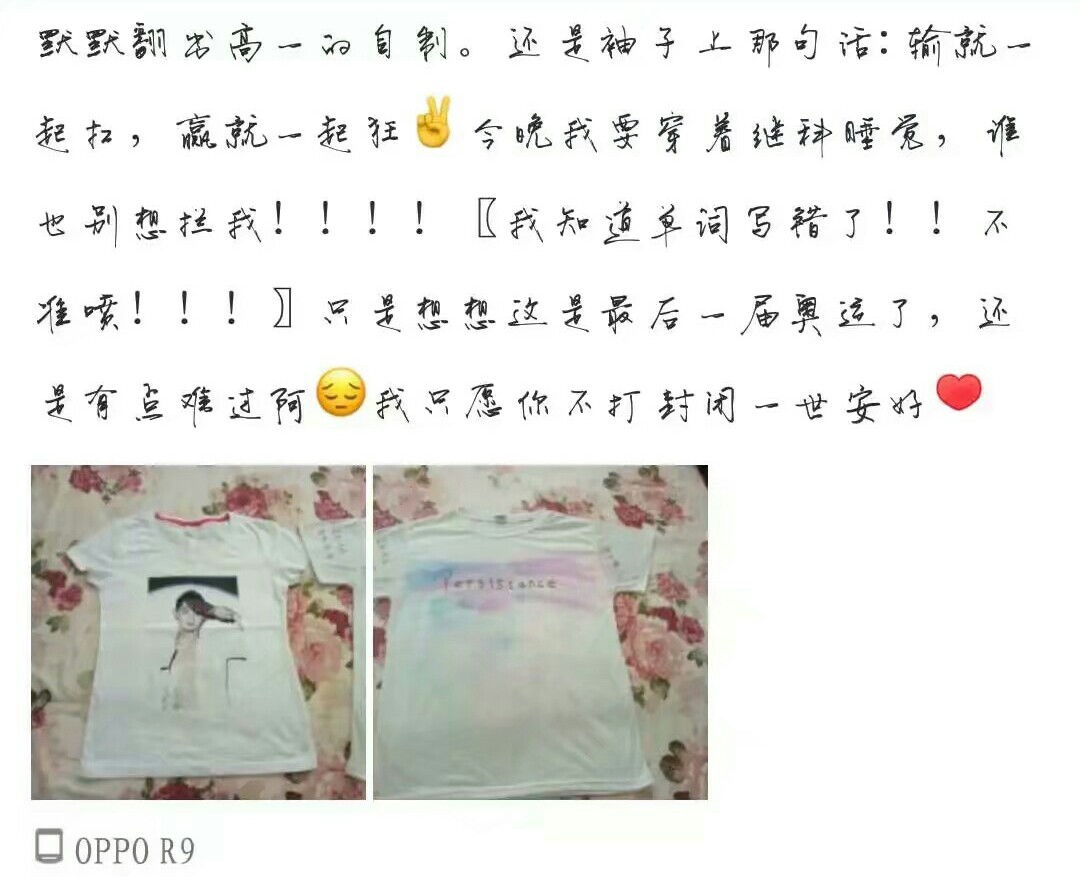 默默翻出高一的自制。还是袖子上那句话：输就一
起扛，赢就一起狂✌今晚我要穿着继科睡觉，谁
也别想拦我！！！！〖我知道单词写错了！！不
准喷！！！〗只是想想这是最后一届奥运了，还
是有点难过阿😔我只愿你不打封闭一世安好❤
Persistance
OPPO R9